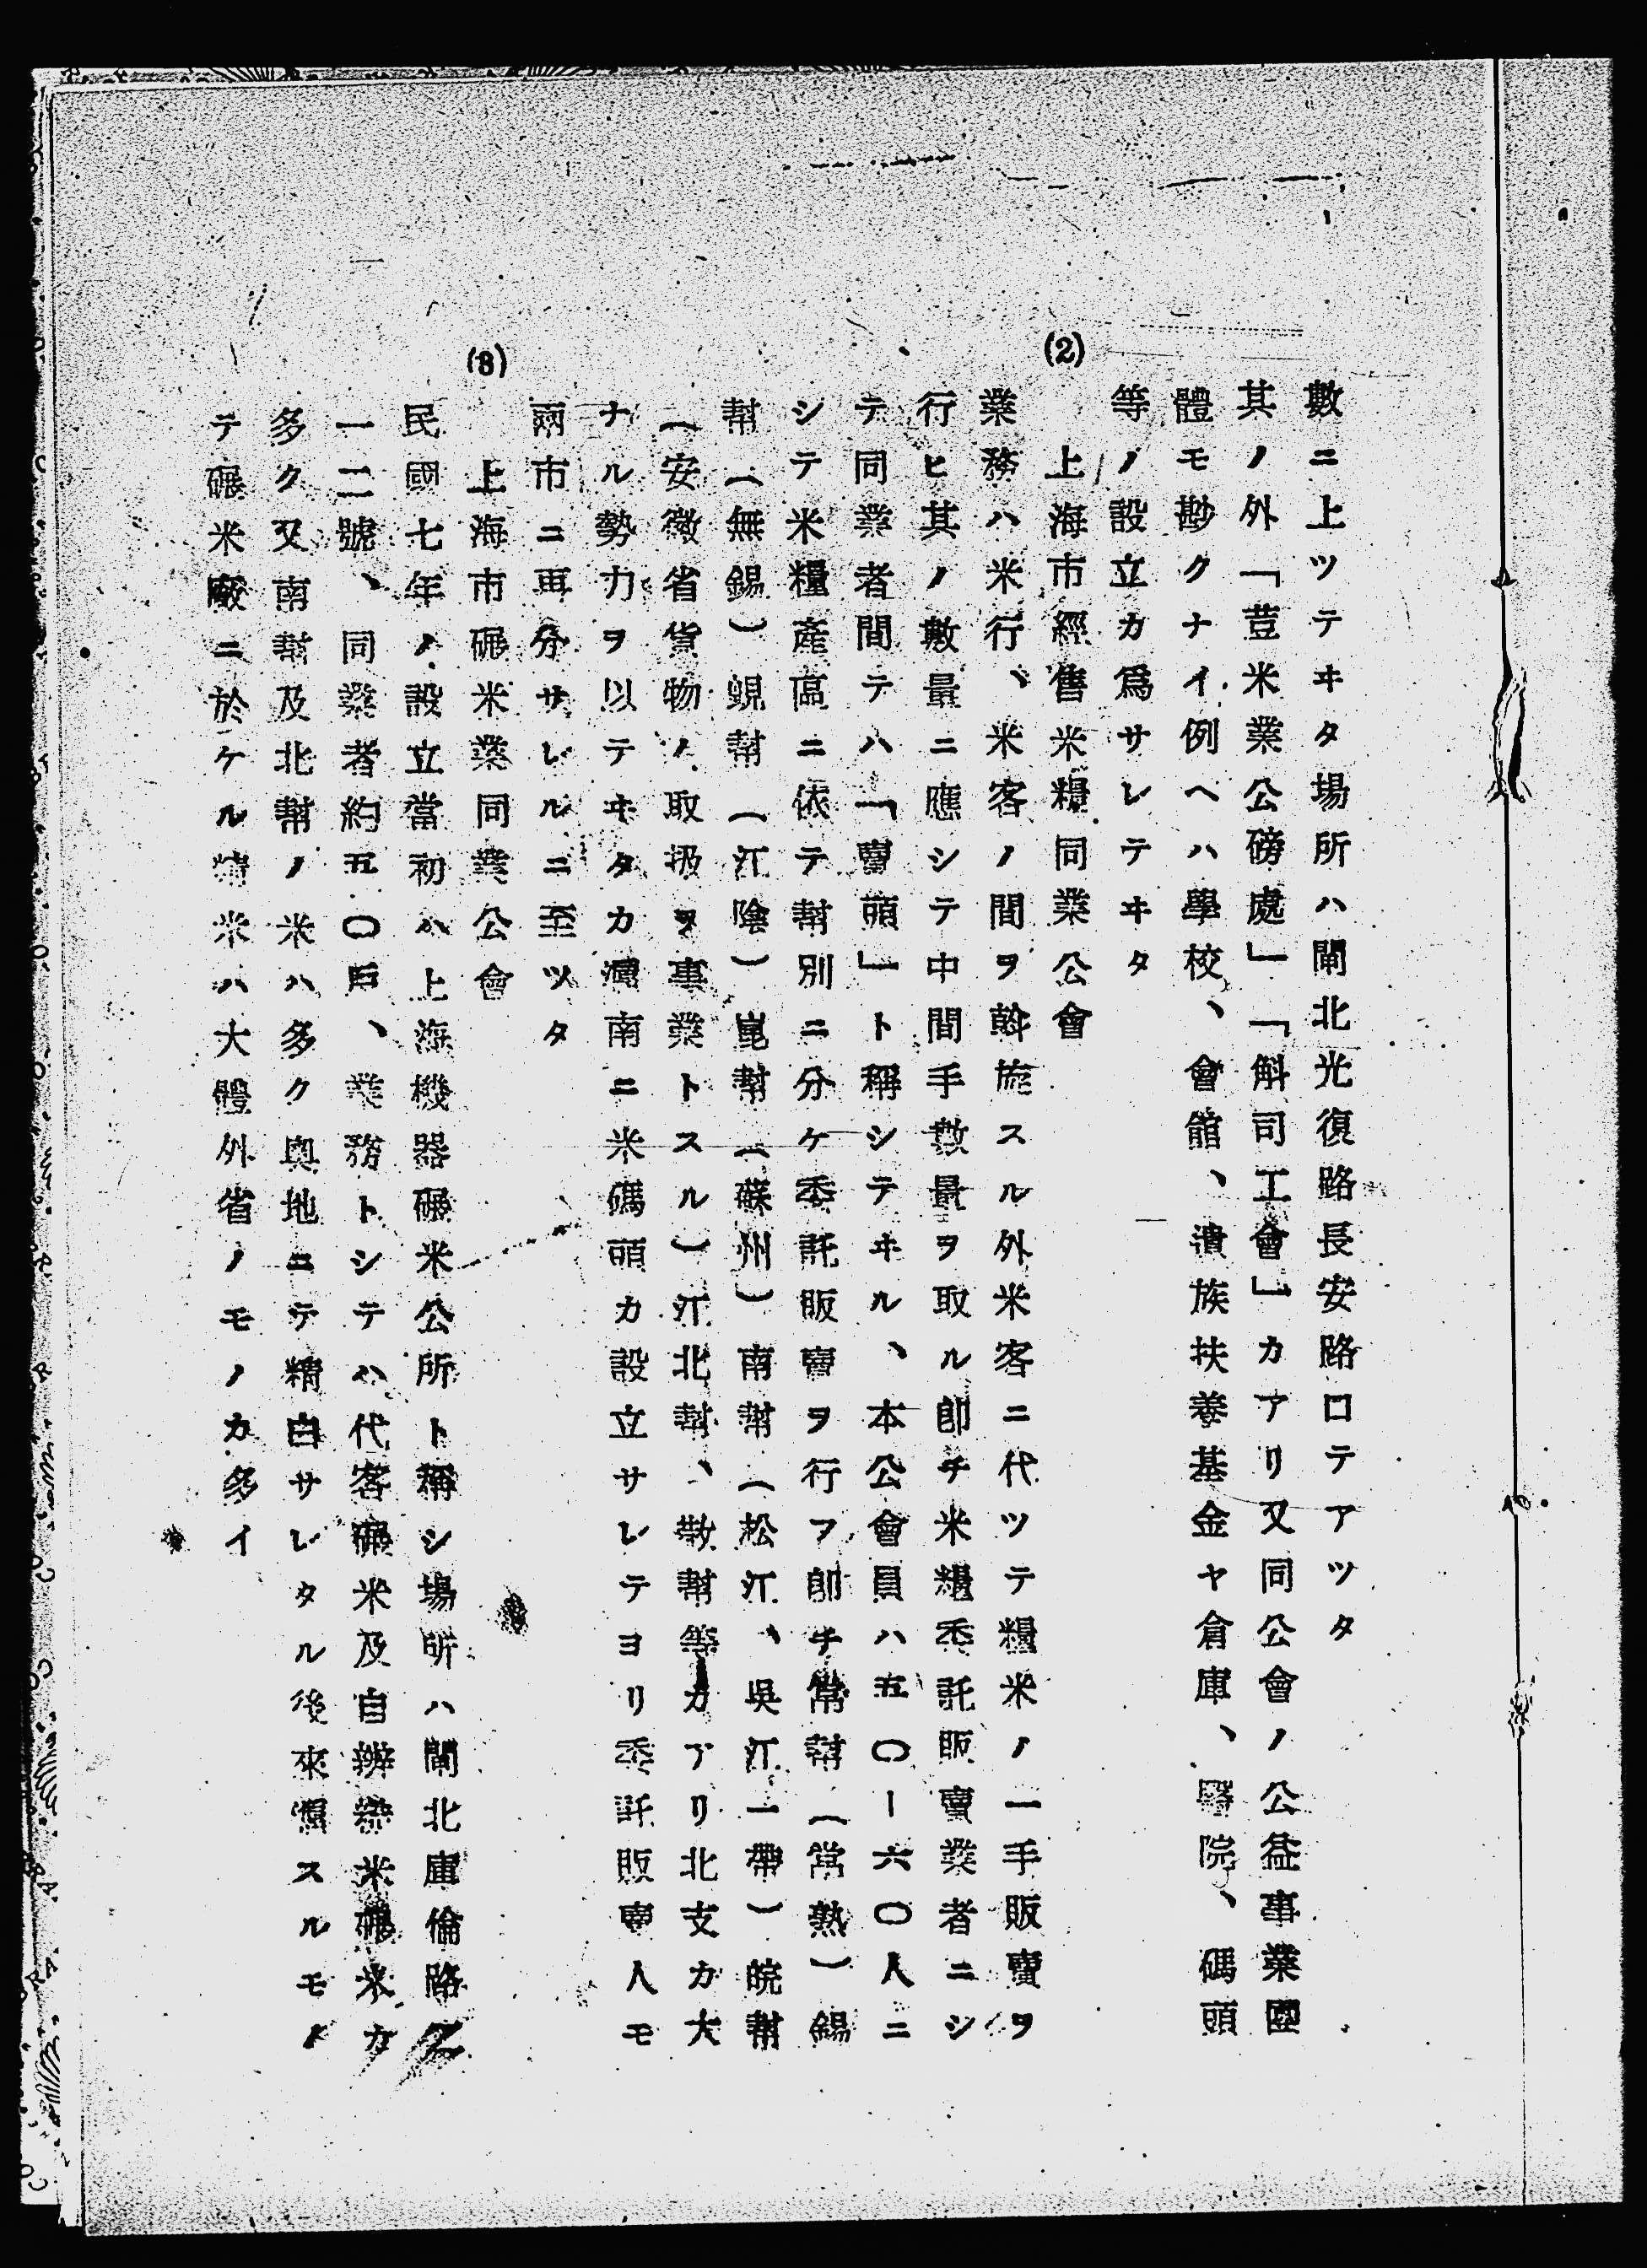 數ニ上ツテヰタ場所ハ閘北光復路長安路口テアツタ
其ノ外「荳米業公磅處」「斛司工會」カアリ又同公會ノ公益事業團
體モ尠クナイ例ヘハ學校、會館、遺族扶養基金ヤ倉庫、醫院、碼頭
等ノ設立カ爲サレテヰタ
(2) 上海市經售米糧同業公會
業務ハ米行、米客ノ間ヲ斡旋スル外米客ニ代ツテ糧米ノ一手販賣ヲ
行ヒ其ノ數量ニ應シテ中間手數量ヲ取ル卽チ米糧委託販賣業者ニシ
テ同業者間テハ「賣頭」ト稱シテヰル、本公會員ハ五〇ー六〇人ニ
シテ米糧產區ニ依テ幇別ニ分ケ委託販賣ヲ行フ卽チ常幇(常熟)錫
幇(無錫)蜆幇(江陰)崑幇(蘇州)南幇(松江、吳江一帶)皖幇
(安徽省貨物ノ取扱ヲ事業トスル)江北幇、敬幇等カアリ北支カ大
ナル勢力ヲ以テヰタカ滬南ニ米碼頭カ設立サレテヨリ委託販賣人モ
兩市ニ再分サレルニ至ツタ
(3) 上海市碾米業同業公會
民國七年ノ設立當初ハ上海機器碾米公所ト稱シ場所ハ閘北庫倫路
一二號、同業者約五〇戶、業務トシテハ代客碾米及自辦糙米碾米カ
多ク又南幇及北幇ノ米ハ多ク奧地ニテ精白サレタル後來滬スルモノ
テ碾米廠ニ於ケル精米ハ大體外省ノモノカ多イ